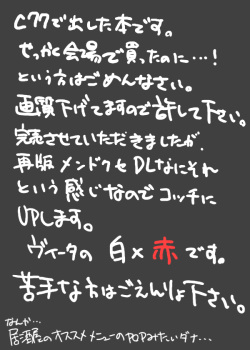 C77で出した本です。
せっかく会場で買ったのに…!
という方はごめんなさい。
画質下げてますので許して下さい。
完売させていただきましたが、
再版メンドクセDLなにそれ
という感じなのでコッチに
UPします。
ヴィータの 白×赤 です。
苦手な方はごえんりょ下さい。
なんか…
居酒屋のオススメメニューのPOPみたいダナ…